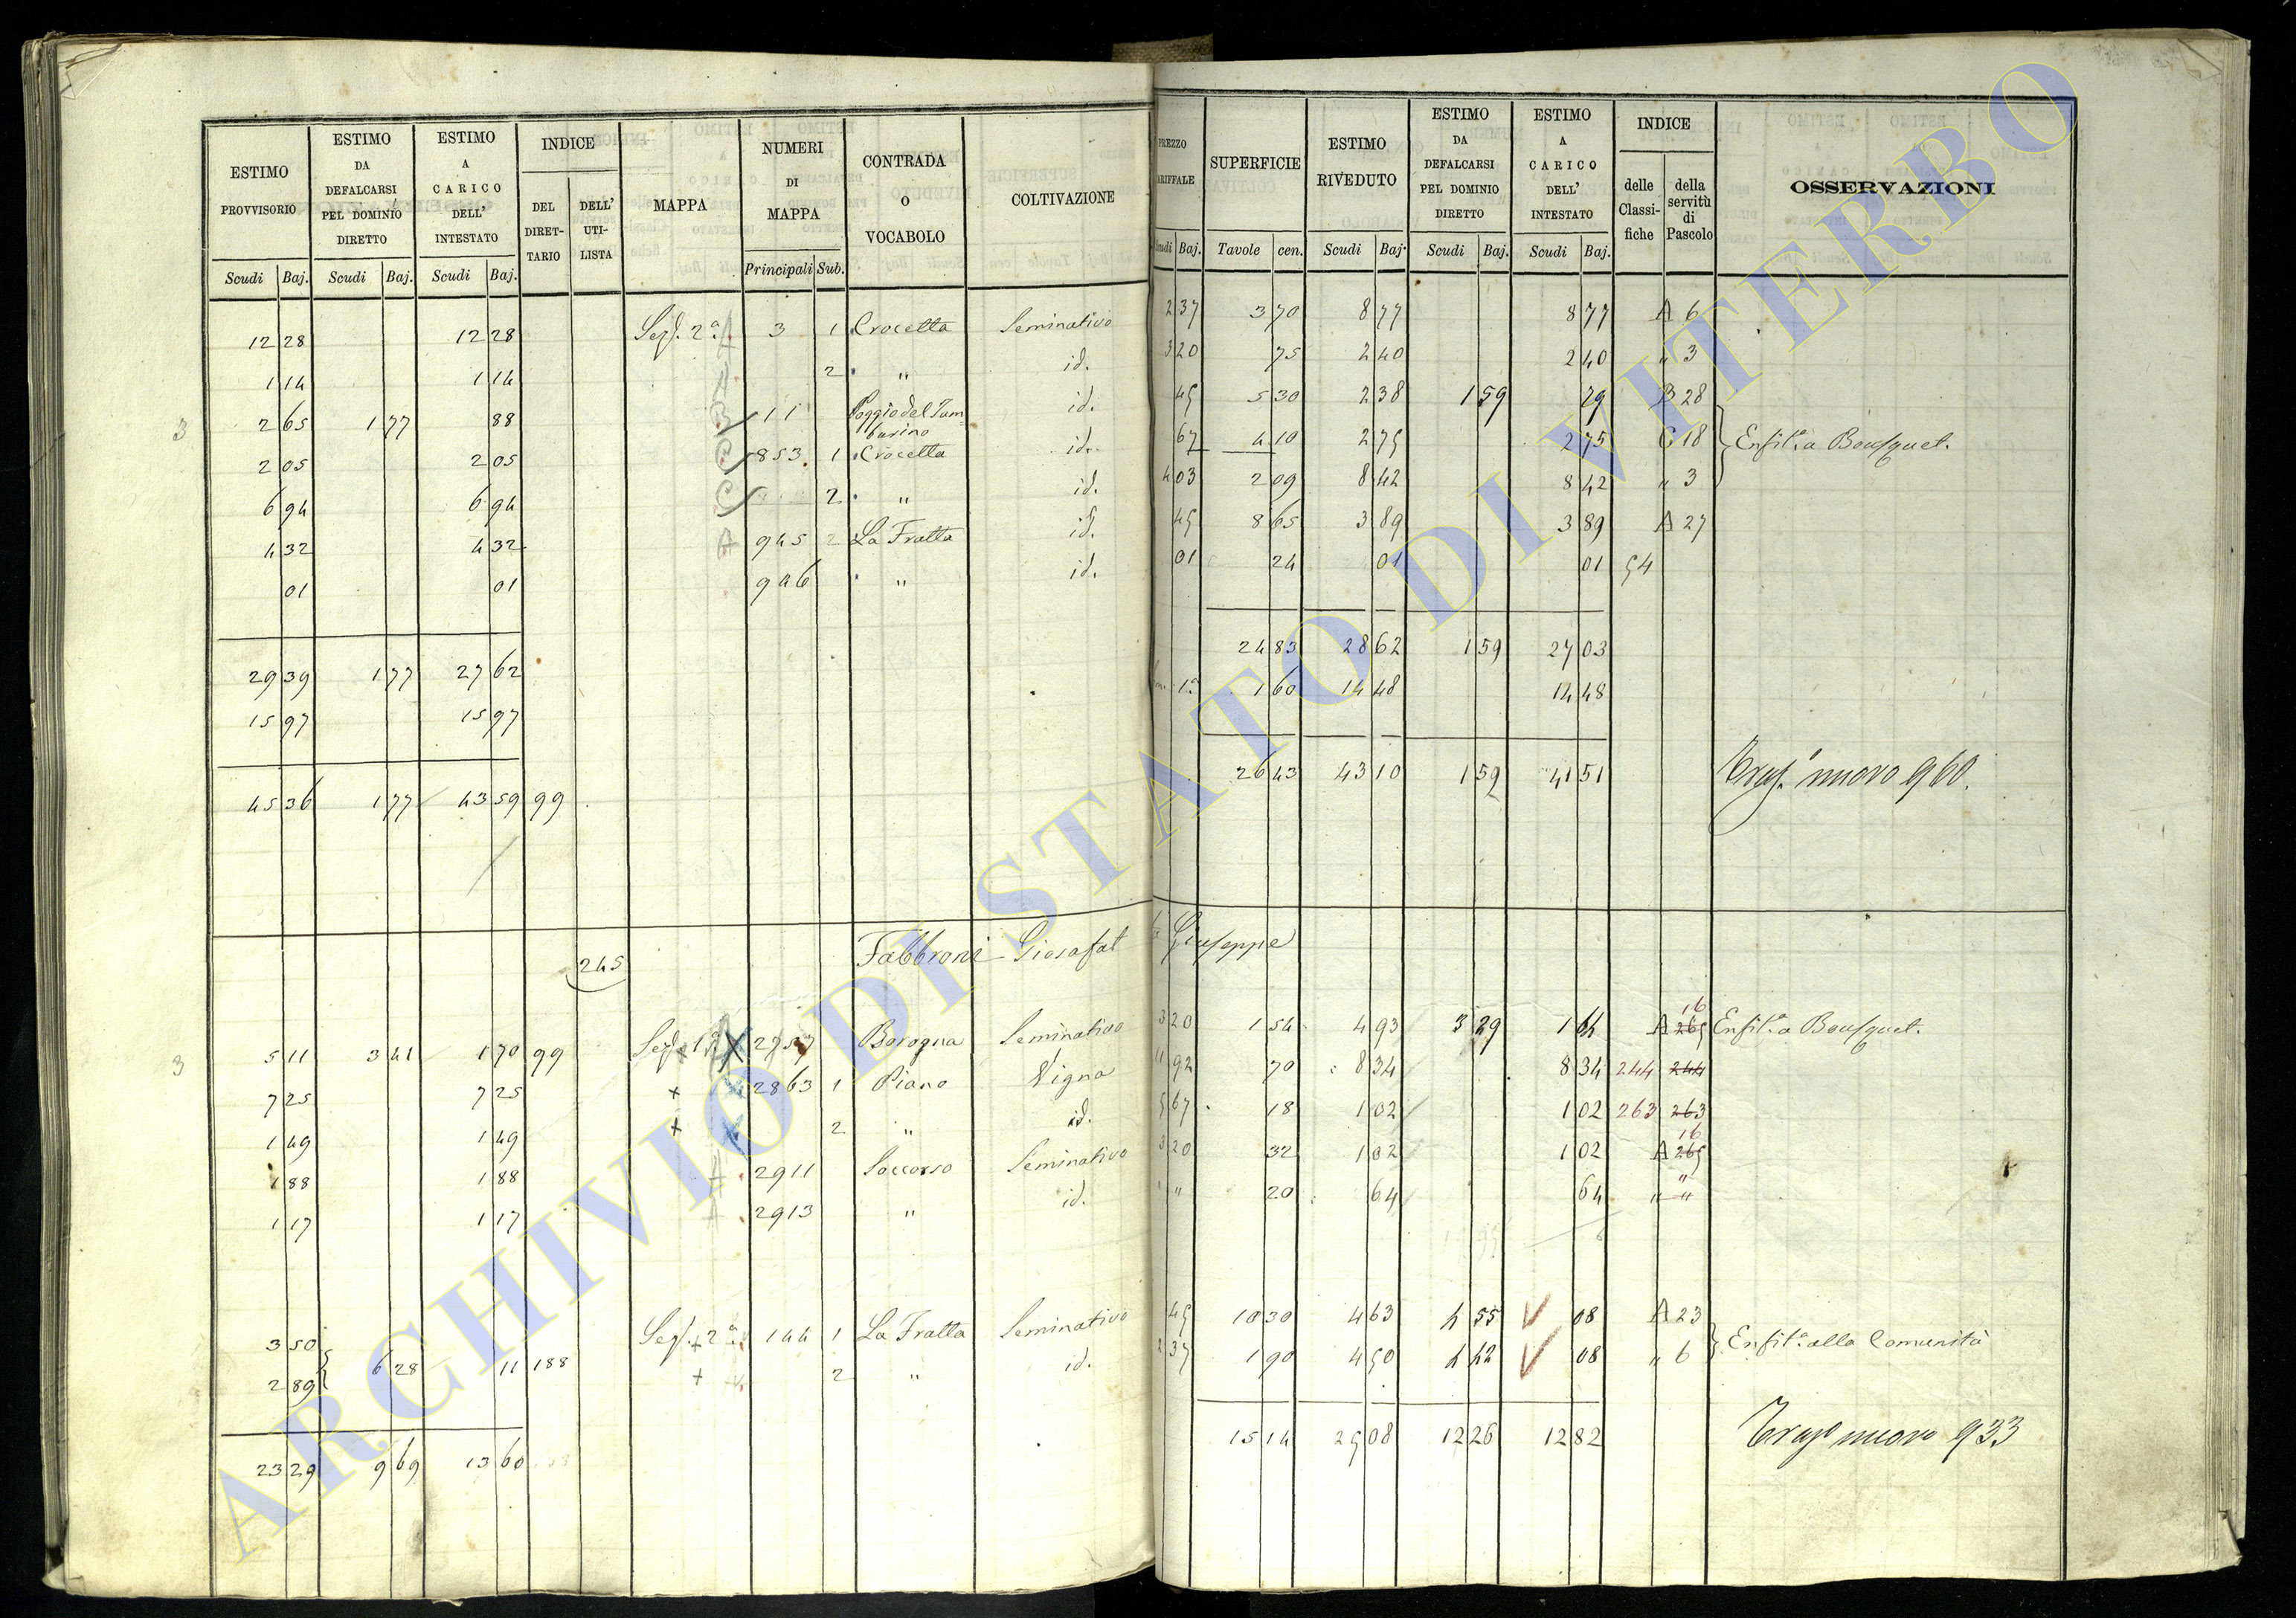 ESTIMO PROVVISORIO | ESTIMO DA DEFALCARSI PEL DOMINIO DIRETTO | ESTIMO A CARICO DELL' INTESTATO | INDICE | MAPPA | NUMERI DI MAPPA | CONTRADA O VOCABOLO | COLTIVAZIONE | PREZZO TARIFFALE | SUPERFICIE | ESTIMO RIVEDUTO | ESTIMO DA DEFALCARSI PEL DOMINIO DIRETTO | ESTIMO A CARICO DELL' INTESTATO | INDICE | OSSERVAZIONI
DEL DIRET-TARIO | DELL' UTI-LISTA | delle Classi-fiche | della servitù di Pascolo
Scudi | Baj. | Scudi | Baj. | Scudi | Baj. | Principali | Sub. | Scudi | Baj. | Tavole | cen. | Scudi | Baj. | Scudi | Baj. | Scudi | Baj.
12 28 | 12 28 | Sez. 2a | 3 | 1 | Crocetta | Seminativo | 2 37 | 3 70 | 8 77 | 8 77 | A 6
1 14 | 1 14 | 2 | " | id. | 3 20 | 75 | 2 40 | 2 40 | " 3
3 | 2 65 | 1 77 | 88 | B | 11 | Poggio del Tam=burino | id. | 45 | 5 30 | 2 38 | 1 59 | 79 | B 28
2 05 | 2 05 | C | 853 | 1 | Crocetta | id. | 67 | 4 10 | 2 75 | 2 75 | C 18 | Enfit.a a Bousquet.
6 94 | 6 94 | C | 2 | " | id. | 4 03 | 2 09 | 8 42 | 8 42 | " 3
4 32 | 4 32 | A | 945 | 2 | La Fratta | id. | 45 | 8 65 | 3 89 | 3 89 | A 27
01 | 01 | 946 | " | id. | 01 | 24 | 01 | 01 | 54
29 39 | 1 77 | 27 62 | 24 83 | 28 62 | 1 59 | 27 03
15 97 | 15 97 | 1a | 1 60 | 14 48 | 14 48
45 36 | 1 77 | 43 59 | 99 | 26 43 | 43 10 | 1 59 | 41 51 | nuovo 960.
245 | Fabbroni Giosafat | Giuseppe
3 | 5 11 | 3 41 | 1 70 | 99 | Sez. 1a | X | 2757 | Borogna | Seminativo | 3 20 | 1 54 | 4 93 | 3 29 | 1 64 | A 265 16 | Enfit.a a Bousquet.
7 25 | 7 25 | + | 2863 | 1 | Piano | Vigna | 11 92 | 70 | 8 34 | 8 34 | 244 | 244
1 49 | 1 49 | + | 2 | " | id. | 5 67 | 18 | 1 02 | 1 02 | 263 | 263
1 88 | 1 88 | 2911 | Soccorso | Seminativo | 3 20 | 32 | 1 02 | 1 02 | A 265 16
1 17 | 1 17 | 2913 | " | id. | " " | 20 | 64 | 64 | " "
3 50 | Sez. 2a | 144 | 1 | La Fratta | Seminativo | 45 | 10 30 | 4 63 | 4 55 | 08 | A 23
6 28 | 11 | 188 | Enfit.a alla Comunità
2 89 | + | 2 | " | id. | 2 37 | 1 90 | 4 50 | 4 42 | 08 | " 6
23 29 | 9 69 | 13 60 | 15 14 | 25 08 | 12 26 | 12 82 | nuovo 933
ARCHIVIO DI STATO DI VITERBO